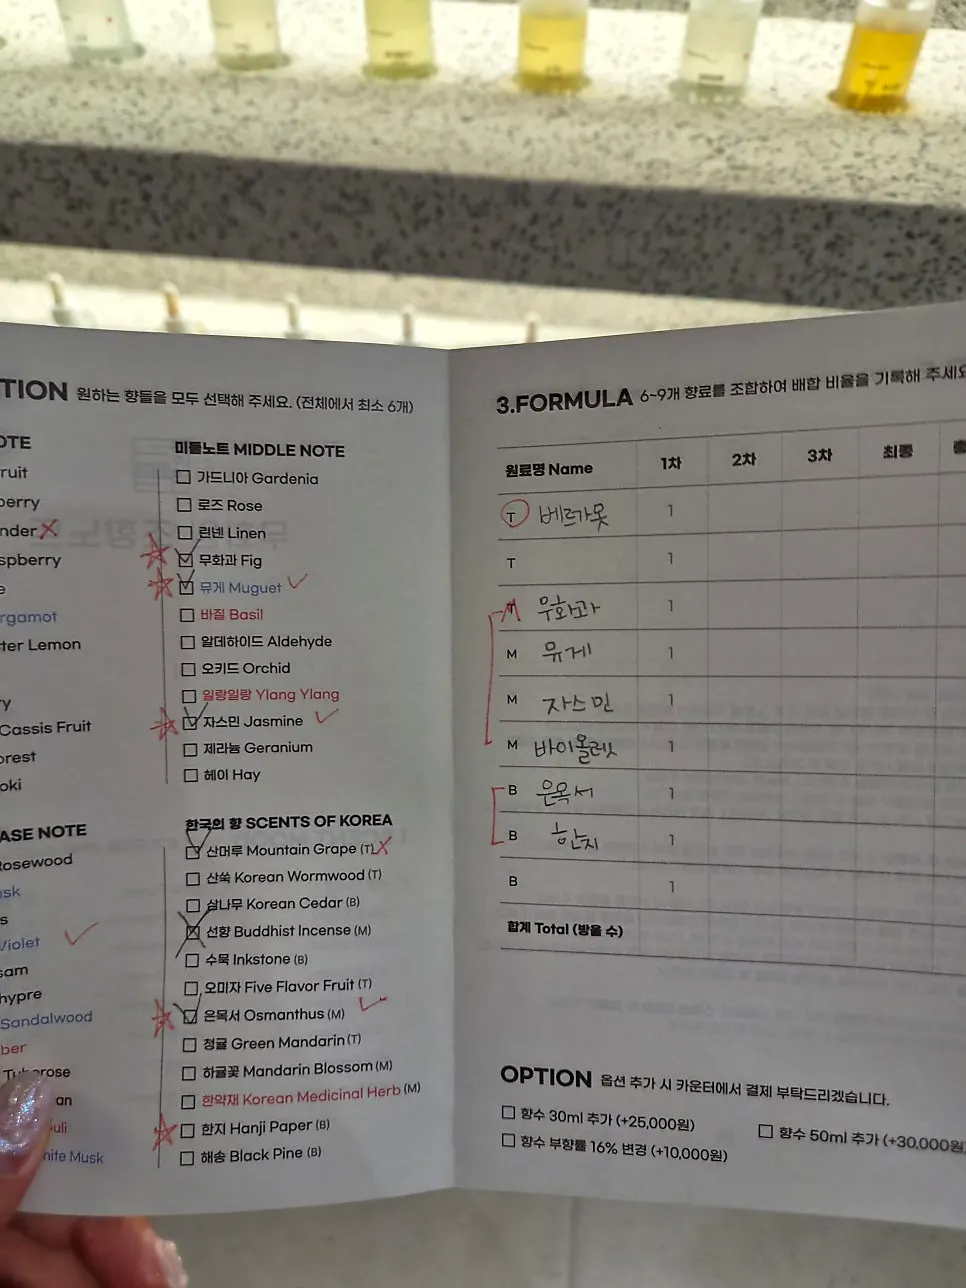 TION 원하는 향들을 모두 선택해 주세요. (전체에서 최소 6개)
OTE
ruit
erry
nder
spberry
e
rgamot
ter Lemon
y
Cassis Fruit
orest
oki
ASE NOTE
osewood
usk
s
Violet
sam
hypre
Sandalwood
ber
Tuberose
an
uli
hite Musk
미들노트 MIDDLE NOTE
가드니아 Gardenia
로즈 Rose
린넨 Linen
무화과 Fig
뮤게 Muguet
바질 Basil
알데하이드 Aldehyde
오키드 Orchid
일랑일랑 Ylang Ylang
자스민 Jasmine
제라늄 Geranium
헤이 Hay
한국의 향 SCENTS OF KOREA
산머루 Mountain Grape (T)
산쑥 Korean Wormwood (T)
삼나무 Korean Cedar (B)
선향 Buddhist Incense (M)
수묵 Inkstone (B)
오미자 Five Flavor Fruit (T)
은목서 Osmanthus (M)
청귤 Green Mandarin (T)
하귤꽃 Mandarin Blossom (M)
한약재 Korean Medicinal Herb (M)
한지 Hanji Paper (B)
해송 Black Pine (B)
3.FORMULA 6~9개 향료를 조합하여 배합 비율을 기록해 주세요
원료명 Name 1차 2차 3차 최종
T 베르가못 1
T 1
무화과 1
M 뮤게 1
M 자스민 1
M 바이올렛 1
B 은목서 1
B 한지 1
B 1
합계 Total (방울 수)
OPTION 옵션 추가 시 카운터에서 결제 부탁드리겠습니다.
향수 30ml 추가 (+25,000원)
향수 50ml 추가 (+30,000원)
향수 부향률 16% 변경 (+10,000원)